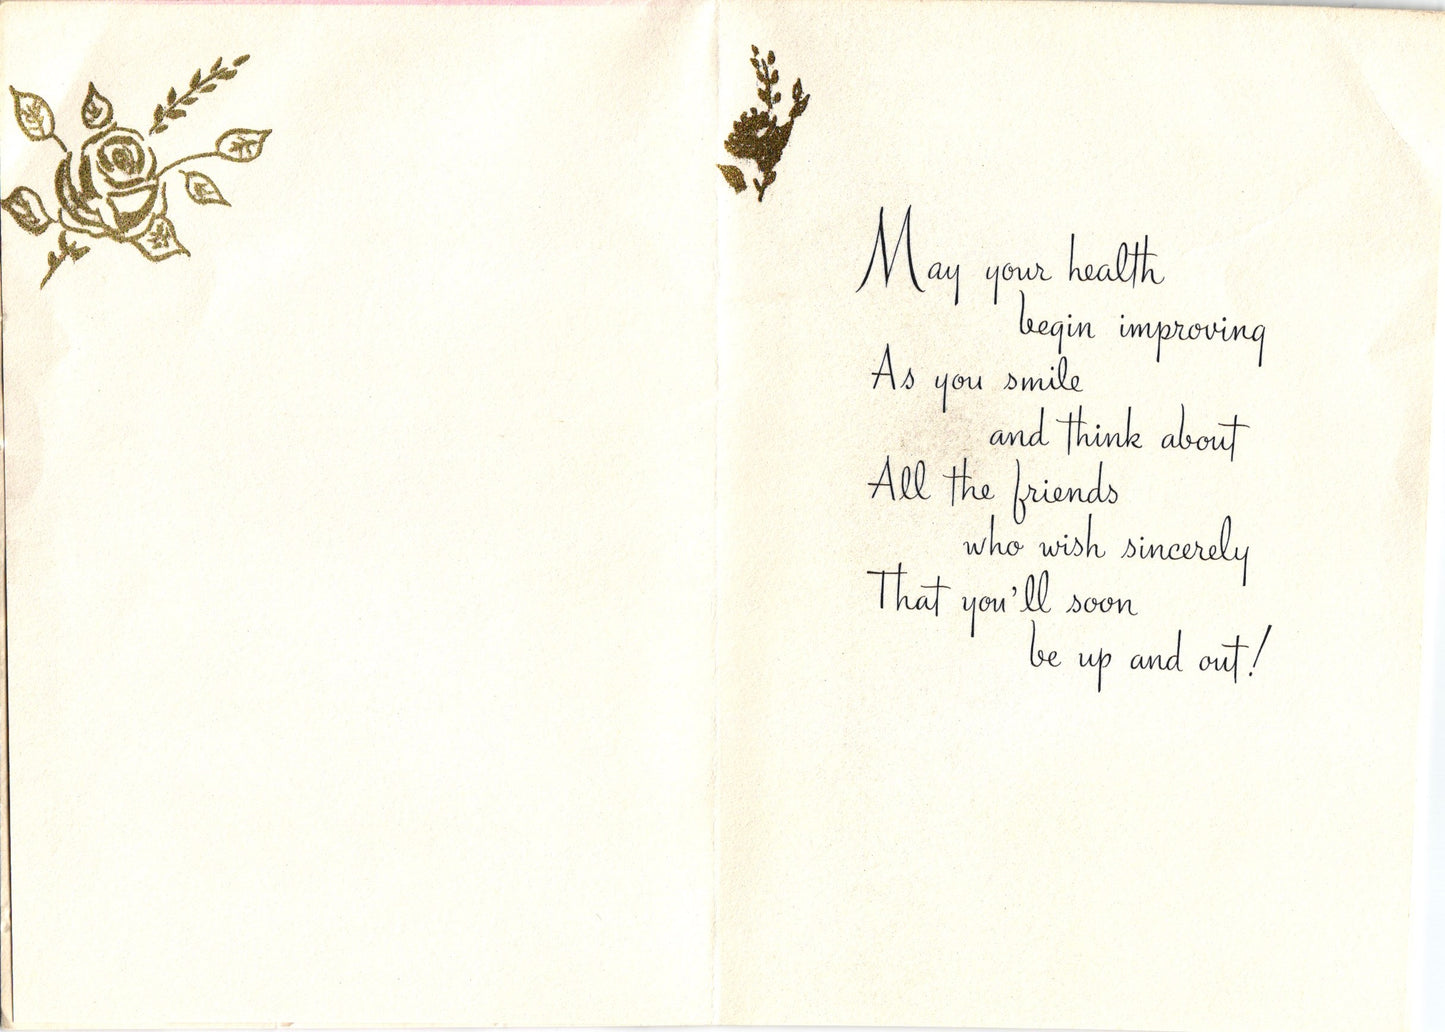 May your health
begin improving
As you smile
and think about
All the friends
who wish sincerely
That you'll soon
be up and out!